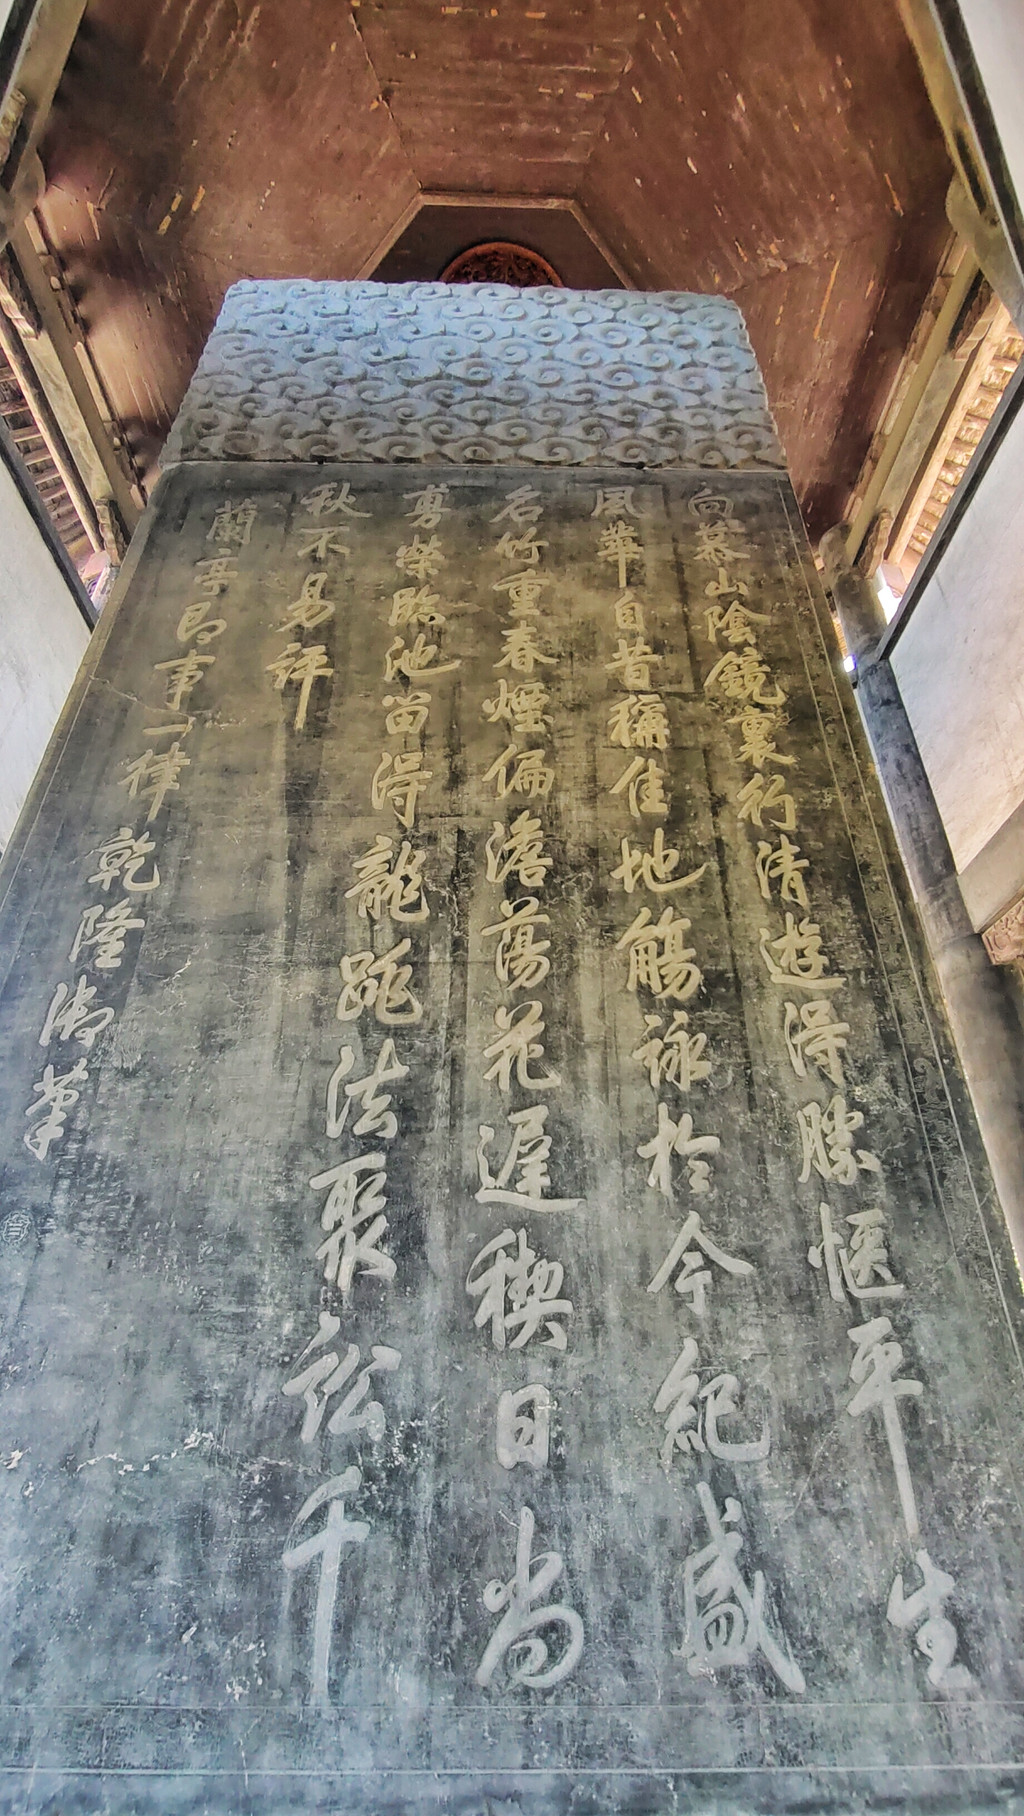 向慕山陰鏡裏行清遊得勝愜平生
風華自昔稱佳地觴詠於今紀盛
名竹重春煙偏澹蕩花遲禊日尚
剪榮臨池留得龍跳法聚訟千
秋不易評
蘭亭即事一律
乾隆御筆